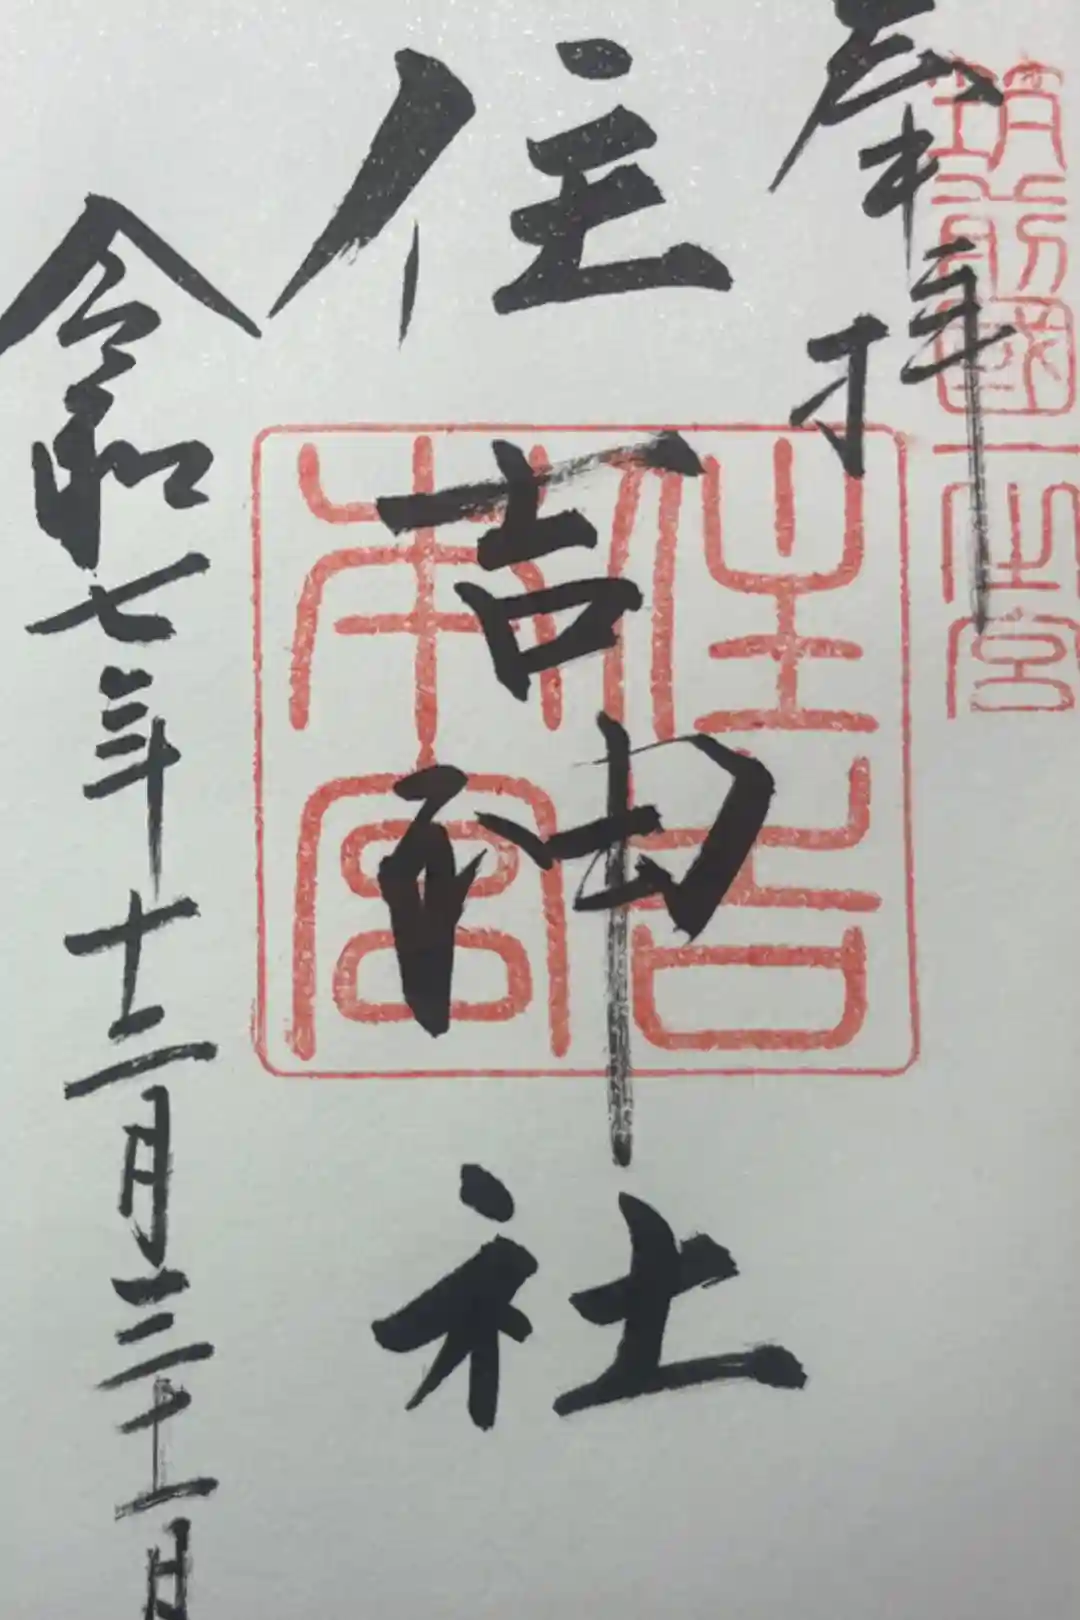 奉拝
筑前國一之宮
住吉神社
住吉本宮
令和七年十二月三十一日